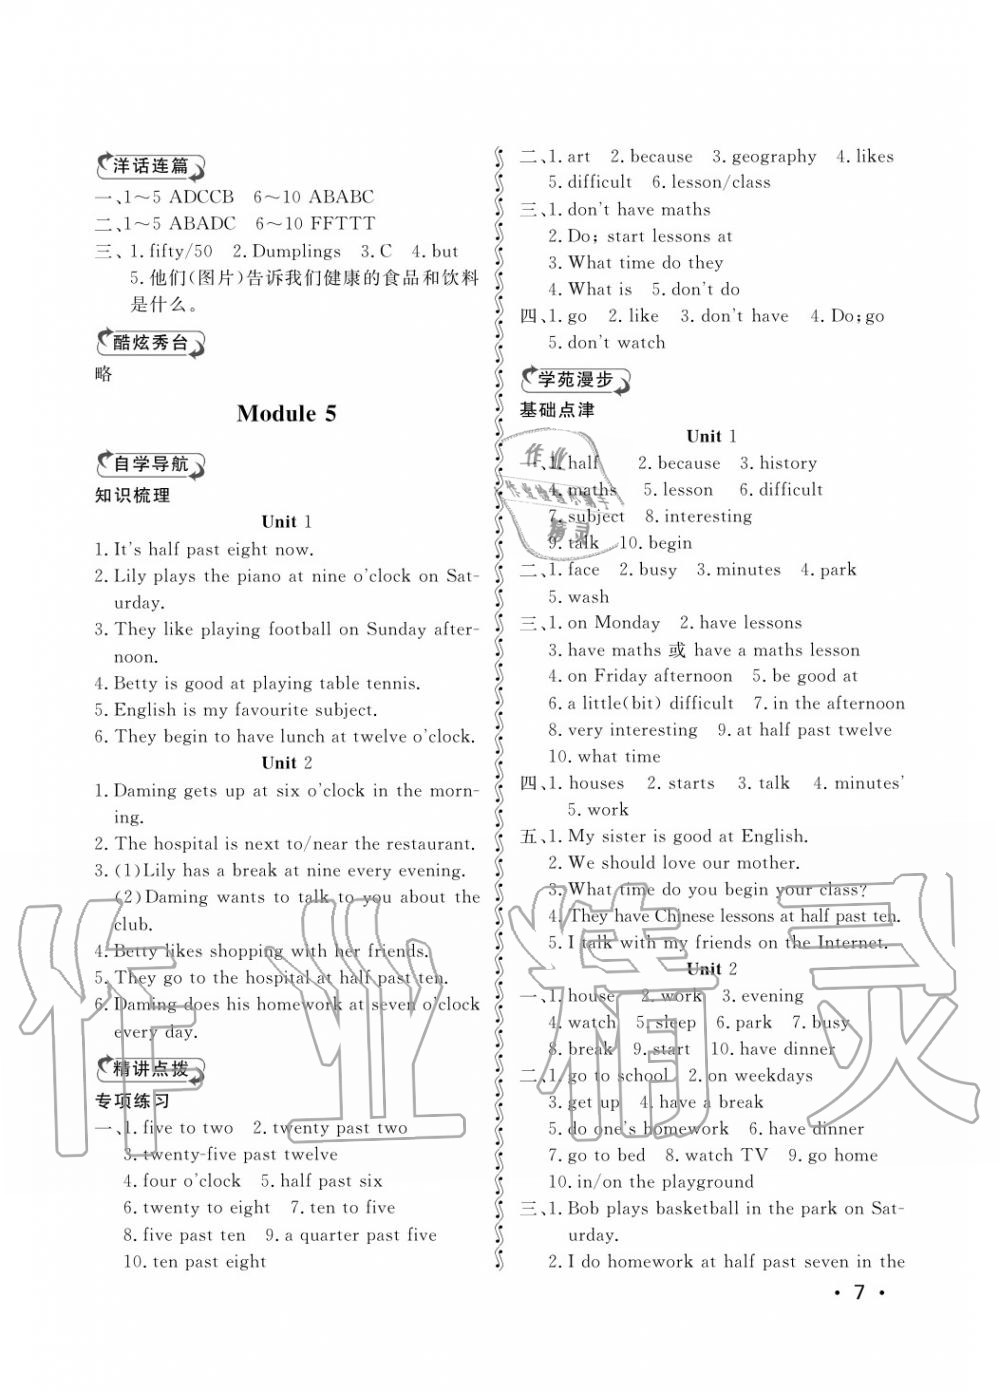 洋话连篇
一、1～5 ADCCB 6～10 ABABC
二、1～5 ABADC 6～10 FFTTT
三、1. fifty/50 2. Dumplings 3. C 4. but
5. 他们(图片)告诉我们健康的食品和饮料
是什么。
酷炫秀台
略
Module 5
自学导航
知识梳理
Unit 1
1. It's half past eight now.
2. Lily plays the piano at nine o'clock on Sat-
urday.
3. They like playing football on Sunday after-
noon.
4. Betty is good at playing table tennis.
5. English is my favourite subject.
6. They begin to have lunch at twelve o'clock.
Unit 2
1. Daming gets up at six o'clock in the morn-
ing.
2. The hospital is next to/near the restaurant.
3. (1)Lily has a break at nine every evening.
(2)Daming wants to talk to you about the
club.
4. Betty likes shopping with her friends.
5. They go to the hospital at half past ten.
6. Daming does his homework at seven o'clock
every day.
精讲点拨
专项练习
一、1. five to two 2. twenty past two
3. twenty-five past twelve
4. four o'clock 5. half past six
6. twenty to eight 7. ten to five
8. five past ten 9. a quarter past five
10. ten past eight
二、1. art 2. because 3. geography 4. likes
5. difficult 6. lesson/class
三、1. don't have maths
2. Do; start lessons at
3. What time do they
4. What is 5. don't do
四、1. go 2. like 3. don't have 4. Do;go
5. don't watch
学苑漫步
基础点津
Unit 1
一、1. half 2. because 3. history
4. maths 5. lesson 6. difficult
7. subject 8. interesting
9. talk 10. begin
二、1. face 2. busy 3. minutes 4. park
5. wash
三、1. on Monday 2. have lessons
3. have maths 或 have a maths lesson
4. on Friday afternoon 5. be good at
6. a little(bit) difficult 7. in the afternoon
8. very interesting 9. at half past twelve
10. what time
四、1. houses 2. starts 3. talk 4. minutes'
5. work
五、1. My sister is good at English.
2. We should love our mother.
3. What time do you begin your class?
4. They have Chinese lessons at half past ten.
5. I talk with my friends on the Internet.
Unit 2
一、1. house 2. work 3. evening
4. watch 5. sleep 6. park 7. busy
8. break 9. start 10. have dinner
二、1. go to school 2. on weekdays
3. get up 4. have a break
5. do one's homework 6. have dinner
7. go to bed 8. watch TV 9. go home
10. in/on the playground
三、1. Bob plays basketball in the park on Sat-
urday.
2. I do homework at half past seven in the
• 7 •
作业精灵